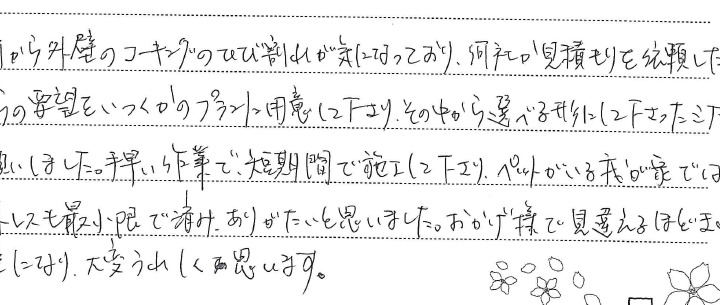 から外壁のコーキングのひび割れが気になっており、何社か見積もりを依頼した
の要望をいくつかのプランに用意して下さり、その中から選べる形にして下さった
しました。手早い作業で、短期間で施工して下さり、ペットがいる我が家では
トレスも最小限で済み、ありがたいと思いました。おかげ様で見違えるほど
になり、大変うれしく思います。